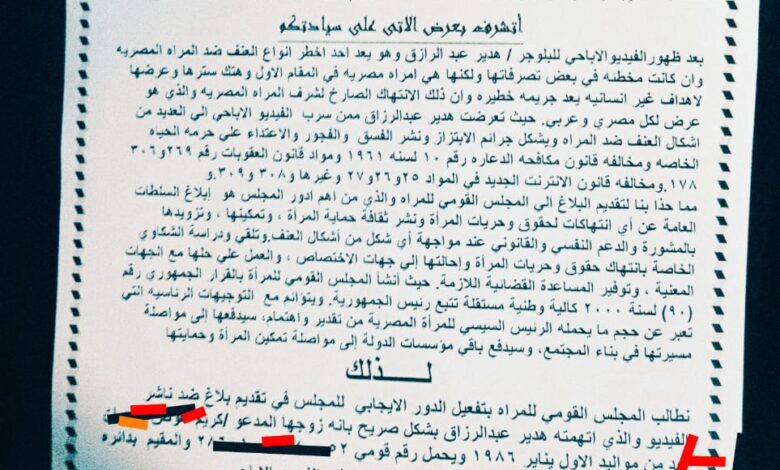 أتشرف بعرض الآتى على سيادتكم
بعد ظهور الفيديو الاباحي للبلوجر / هدير عبد الرازق وهو يعد احد اخطر انواع العنف ضد المراه المصريه
وان كانت مخطئه في بعض تصرفاتها ولكنها هي امراه مصريه في المقام الاول وهتك سترها وعرضها
لاهداف غير انسانيه يعد جريمه خطيره وان ذلك الانتهاك الصارخ لشرف المراه المصريه والذي هو
عرض لكل مصري وعربي. حيث تعرضت هدير عبدالرزاق ممن سرب الفيديو الاباحي الي العديد من
اشكال العنف ضد المراه ويشكل جرائم الابتزاز ونشر الفسق والفجور والاعتداء علي حرمه الحياه
الخاصه ومخالفه قانون مكافحه الدعاره رقم ١٠ لسنه ١٩٦١ ومواد قانون العقوبات رقم ٢٦٩و٣٠٦
١٧٨.ومخالفه قانون الانترنت الجديد في المواد ٢٥و٢٦و٢٧ وغيرها و٣٠٨ و٣٠٩.و
مما حذا بنا لتقديم البلاغ الي المجلس القومي للمراه والذي من اهم ادور المجلس هو إبلاغ السلطات
العامة عن أي انتهاكات لحقوق وحريات المرأة ونشر ثقافة حماية المرأة ، وتمكينها ، وتزويدها
بالمشورة والدعم النفسي والقانوني عند مواجهة أي شكل من أشكال العنف.وتلقي ودراسة الشكاوي
الخاصة بانتهاك حقوق وحريات المرأة وإحالتها إلي جهات الاختصاص ، والعمل علي حلها مع الجهات
المعنية ، وتوفير المساعدة القضائية اللازمة. حيث أنشأ المجلس القومي للمرأة بالقرار الجمهوري رقم
(٩٠) لسنة ٢٠٠٠ كآلية وطنية مستقلة تتبع رئيس الجمهورية. ويتوائم مع التوجيهات الرئاسيه التي
تعبر عن حجم ما يحمله الرئيس السيسي للمرأة المصرية من تقدير واهتمام، سيدفعها إلى مواصلة
مسيرتها في بناء المجتمع، وسيدفع باقي مؤسسات الدولة إلى مواصلة تمكين المرأة وحمايتها
لــذلك
نطالب المجلس القومي للمراه بتفعيل الدور الايجابي للمجلس في تقديم بلاغ ضد ناشر
الفيديو والذي اتهمته هدير عبدالرزاق بشكل صريح بانه زوجها المدعو /كريم
من مواليد الاول يناير ١٩٨٦ ويحمل رقم قومي ٢/٨ ٥٢ والمقيم بدائره